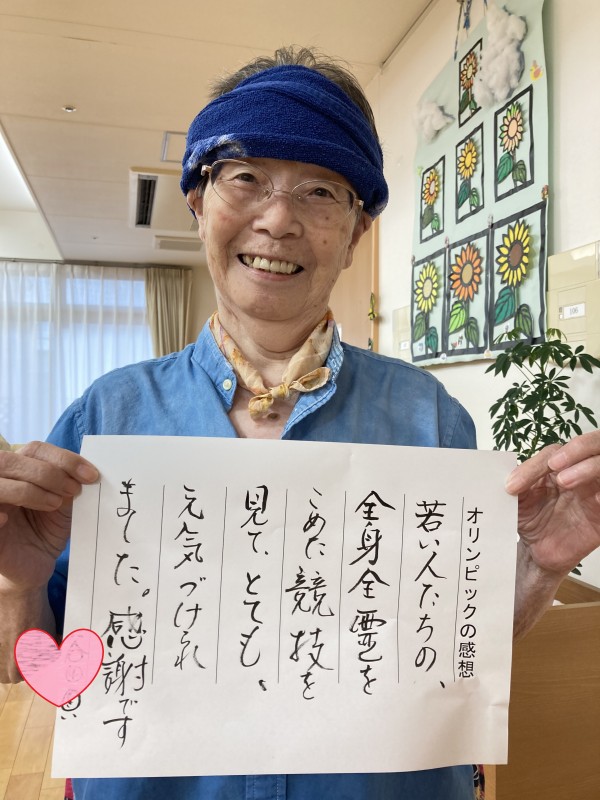 オリンピックの感想
若い人たちの、
全身全霊を
こめた競技を
見て、とても、
元気づけられ
ました。感謝です
106